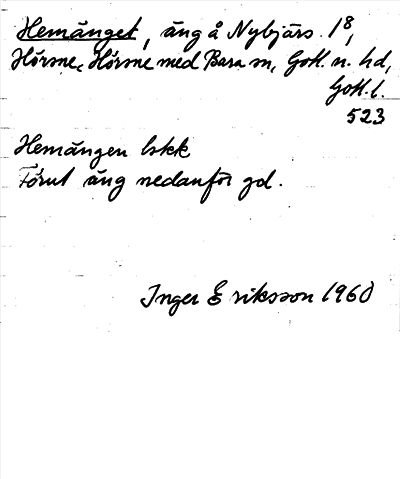 Hemänget, äng å Nybjärs. 1⁸,
Hörsne, Hörsne med Bara sn, Gotl. n. hd,
Gotl. l.
523
Hemängen bskk
Förut äng nedanför gd.
Inger Eriksson 1960